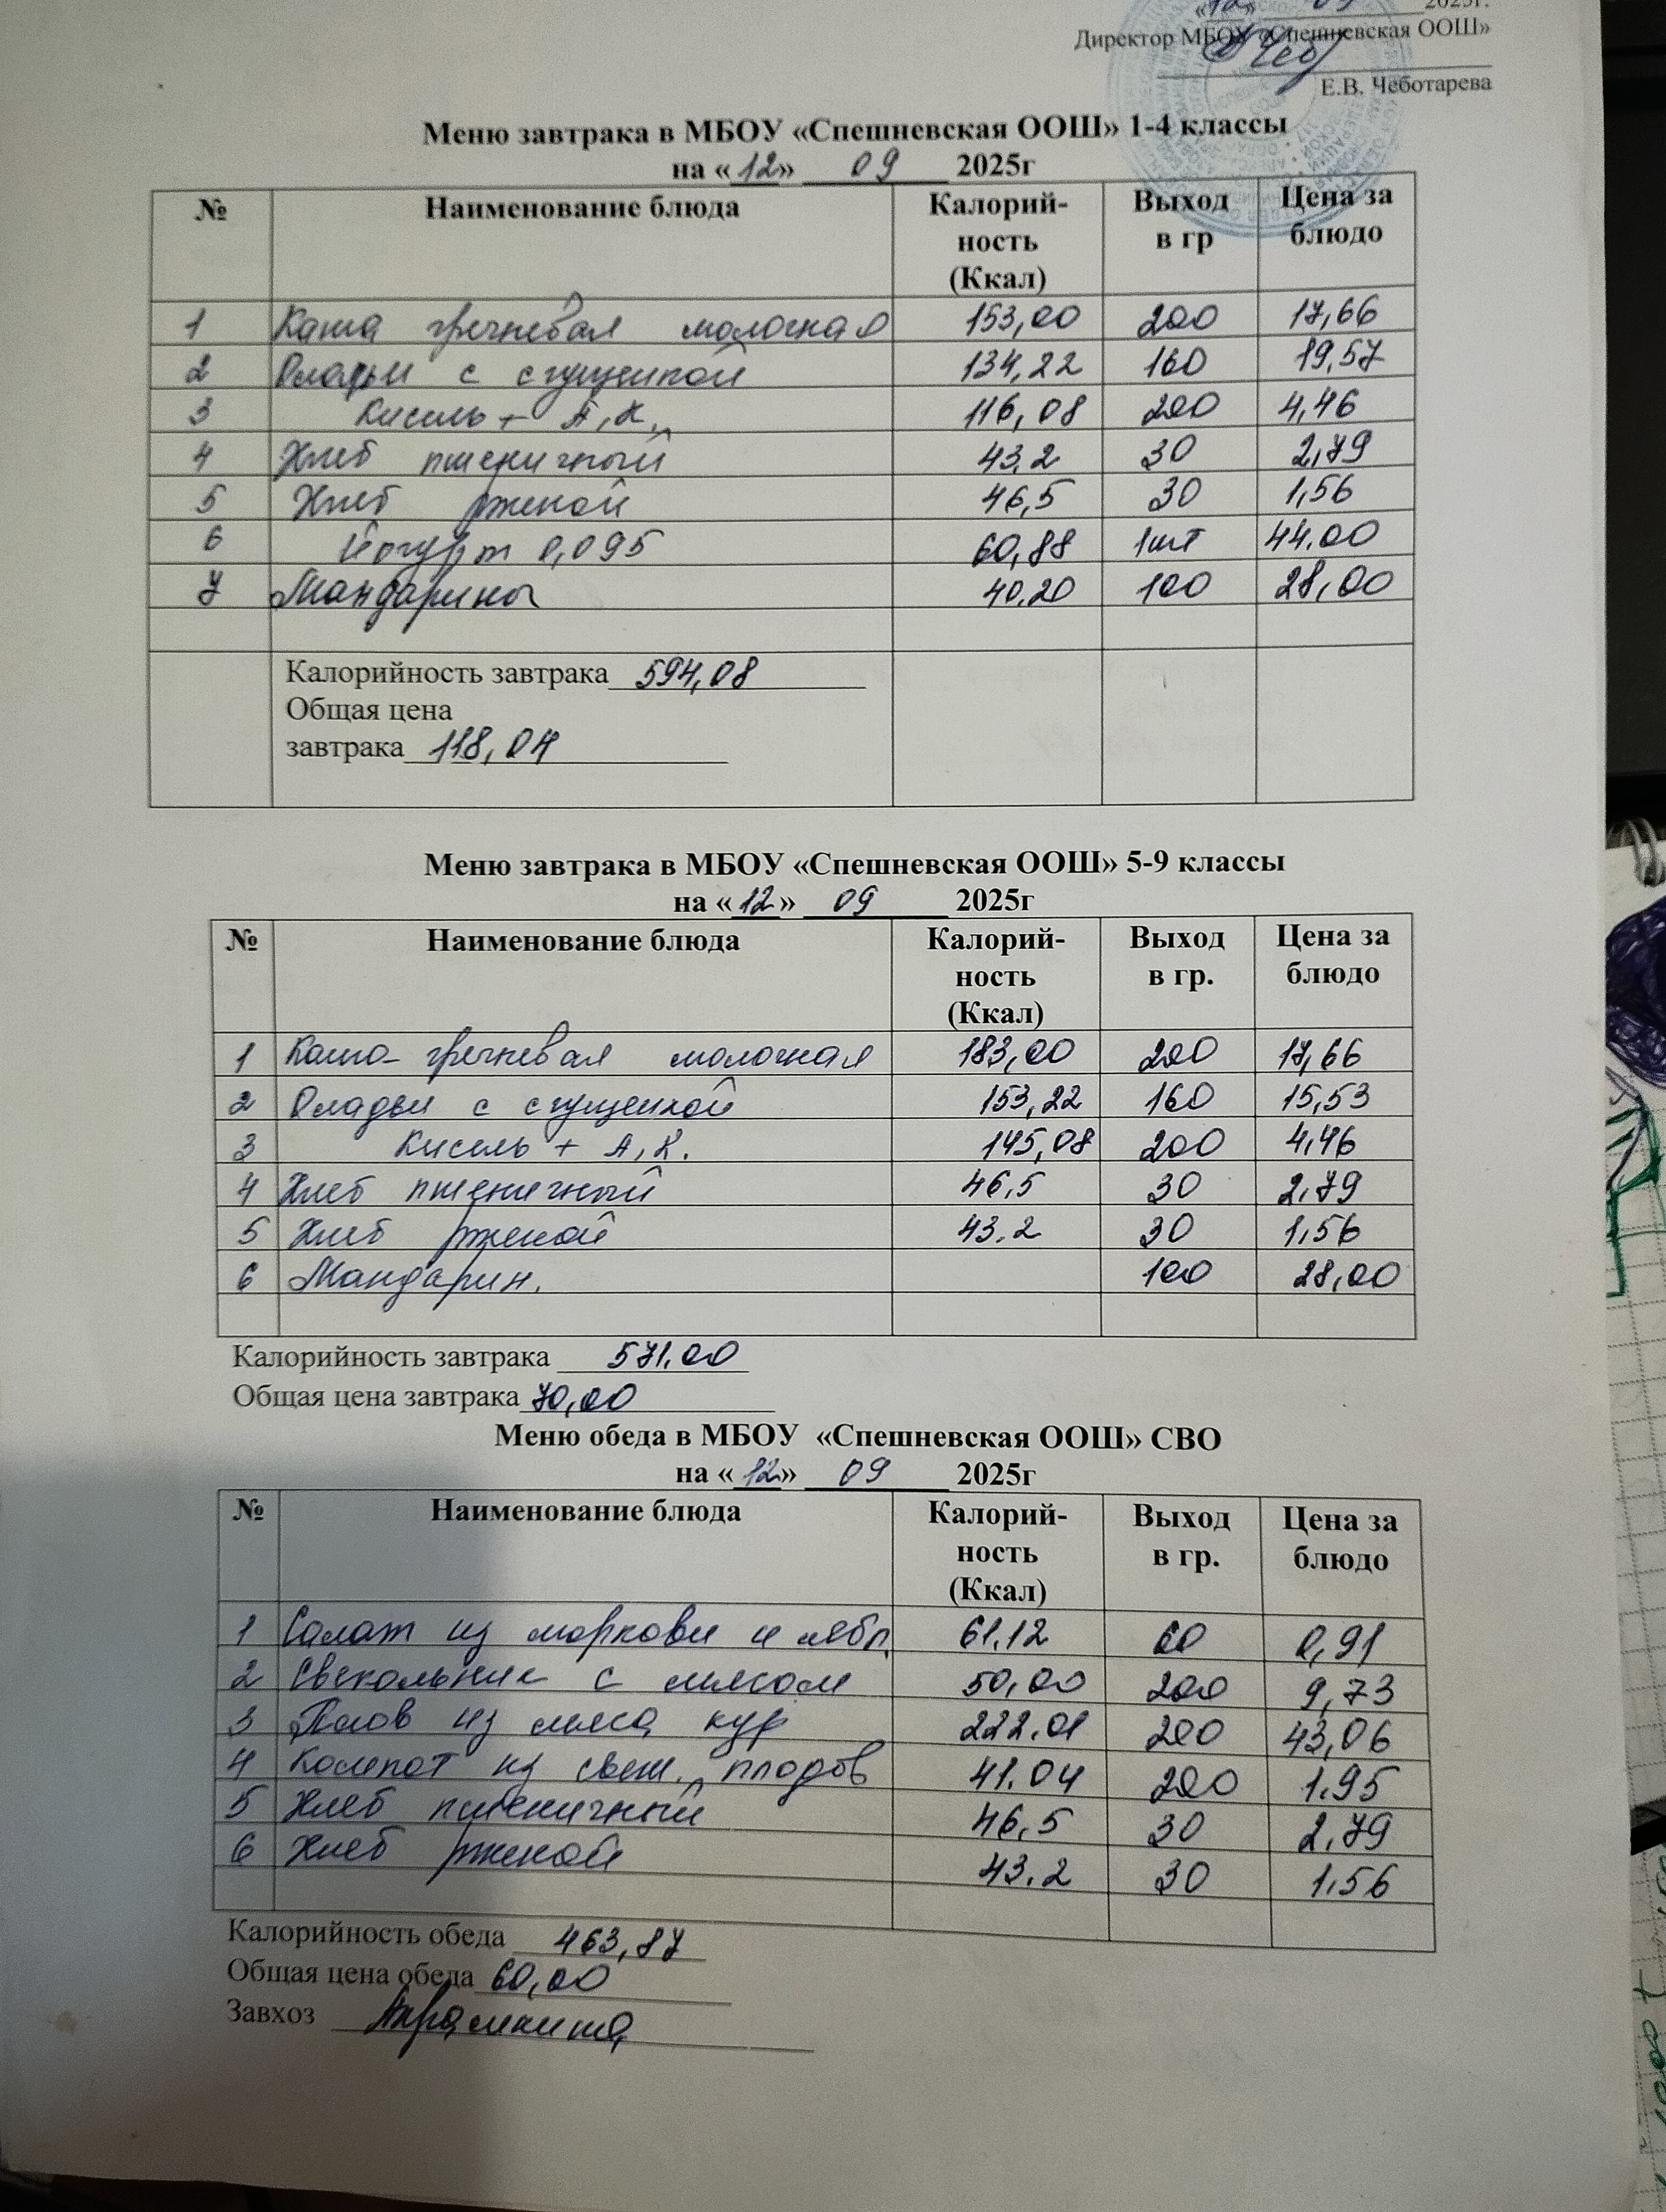 «12» 09 2025г.
Директор МБОУ «Спешневская ООШ»
Е.В. Чеботарева
Меню завтрака в МБОУ «Спешневская ООШ» 1-4 классы
на «12» 09 2025г
№ Наименование блюда Калорий-ность (Ккал) Выход в гр Цена за блюдо
1 Каша гречневая молочная 153,00 200 17,66
2 Оладьи с сгущенкой 134,22 160 19,57
3 Кисель + А,К. 116,08 200 4,46
4 Хлеб пшеничный 43.2 30 2,79
5 Хлеб ржаной 46,5 30 1,56
6 Йогурт 0,095 60,88 1шт 44.00
7 Мандарины 40,20 100 28,00
Калорийность завтрака 594,08
Общая цена
завтрака 118,04
Меню завтрака в МБОУ «Спешневская ООШ» 5-9 классы
на «12» 09 2025г
№ Наименование блюда Калорий-ность (Ккал) Выход в гр. Цена за блюдо
1 Каша гречневая молочная 183,00 200 17,66
2 Оладьи с сгущенкой 153,22 160 15,53
3 Кисель + А,К. 145,08 200 4,46
4 Хлеб пшеничный 46,5 30 2,79
5 Хлеб ржаной 43.2 30 1,56
6 Мандарин. 100 28,00
Калорийность завтрака 571.00
Общая цена завтрака 70,00
Меню обеда в МБОУ «Спешневская ООШ» СВО
на «12» 09 2025г
№ Наименование блюда Калорий-ность (Ккал) Выход в гр. Цена за блюдо
1 Салат из моркови и ябл. 61.12 60 0,91
2 Свекольник с мясом 50,00 200 9,73
3 Плов из мяса кур 222.01 200 43,06
4 Компот из свеж. плодов 41.04 200 1.95
5 Хлеб пшеничный 46,5 30 2,79
6 Хлеб ржаной 43.2 30 1.56
Калорийность обеда 463,87
Общая цена обеда 60,00
Завхоз